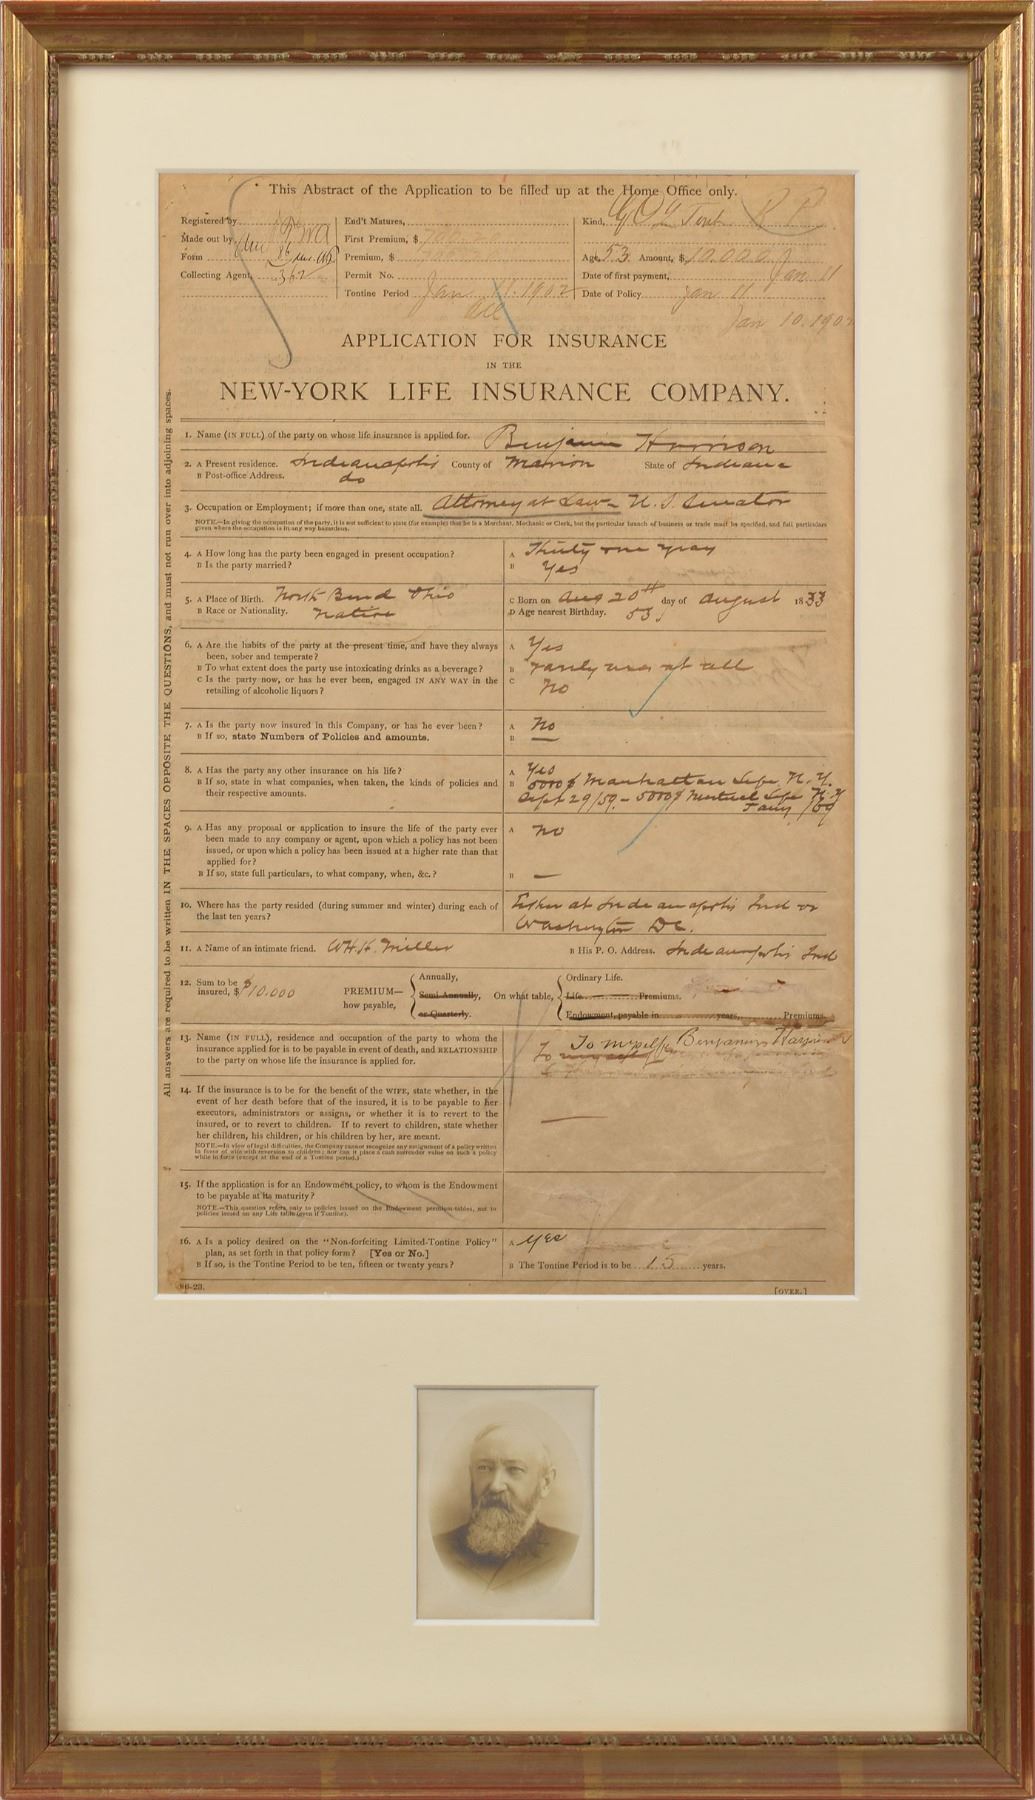 This Abstract of the Application to be filled up at the Home Office only.
Registered by
Made out by
Form
Collecting Agent, 362
End't Matures,
First Premium, $ 700.20
Premium, $
Permit No.
Tontine Period Jan 11. 1902
Kind, Tont
Age, 53 Amount, $ 10.000.
Date of first payment, Jan 11
Date of Policy Jan 11
Jan 10. 190
APPLICATION FOR INSURANCE
IN THE
NEW-YORK LIFE INSURANCE COMPANY.
All answers are required to be written IN THE SPACES OPPOSITE THE QUESTIONS, and must not run over into adjoining spaces.
1. Name (IN FULL) of the party on whose life insurance is applied for. Benjamin Harrison
2. A Present residence. Indianapolis County of Marion State of Indiana
B Post-office Address. do
3. Occupation or Employment; if more than one, state all. Attorney at Law - U. S. Senator
NOTE.—In giving the occupation of the party, it is not sufficient to state (for example) that he is a Merchant, Mechanic or Clerk, but the particular branch of business or trade must be specified, and full particulars
given where the occupation is in any way hazardous.
4. A How long has the party been engaged in present occupation? A Thirty one years
B Is the party married? B Yes
5. A Place of Birth. North Bend Ohio C Born on Aug 20th day of August 1833
B Race or Nationality. Native D Age nearest Birthday. 53
6. A Are the habits of the party at the present time, and have they always A Yes
been, sober and temperate?
B To what extent does the party use intoxicating drinks as a beverage? B rarely uses at all
C Is the party now, or has he ever been, engaged IN ANY WAY in the C No
retailing of alcoholic liquors?
7. A Is the party now insured in this Company, or has he ever been? A No
B If so, state Numbers of Policies and amounts. B —
8. A Has the party any other insurance on his life? A Yes
B If so, state in what companies, when taken, the kinds of policies and B 5000$ Manhattan Life N. Y.
their respective amounts. Sept 29/59 - 5000$ Mutual Life N. Y
9. A Has any proposal or application to insure the life of the party ever A no
been made to any company or agent, upon which a policy has not been
issued, or upon which a policy has been issued at a higher rate than that
applied for?
B If so, state full particulars, to what company, when, &c.? B —
10. Where has the party resided (during summer and winter) during each of Either at Indianapolis Ind or
the last ten years? Washington DC.
11. A Name of an intimate friend. WHH Miller B His P. O. Address. Indianapolis Ind
12. Sum to be
insured, $ 10.000
PREMIUM—
how payable,
Annually,
Semi-Annually,
or Quarterly.
On what table,
Ordinary Life.
Life Premiums.
Endowment, payable in years, Premiums.
13. Name (IN FULL), residence and occupation of the party to whom the To myself Benjamin Harrison
insurance applied for is to be payable in event of death, and RELATIONSHIP To
to the party on whose life the insurance is applied for.
14. If the insurance is to be for the benefit of the WIFE, state whether, in the
event of her death before that of the insured, it is to be payable to her
executors, administrators or assigns, or whether it is to revert to the
insured, or to revert to children. If to revert to children, state whether
her children, his children, or his children by her, are meant.
NOTE.—In view of legal difficulties, the Company cannot recognize any assignment of a policy written
in favor of wife with reversion to children; nor can it place a cash surrender value on such a policy
while in force (except at the end of a Tontine period.)
15. If the application is for an Endowment policy, to whom is the Endowment
to be payable at its maturity?
NOTE.—This question refers only to policies issued on the Endowment premium-tables, not to
policies issued on any Life table (even if Tontine).
16. A Is a policy desired on the "Non-forfeiting Limited-Tontine Policy" A yes
plan, as set forth in that policy form? [Yes or No.]
B If so, is the Tontine Period to be ten, fifteen or twenty years? B The Tontine Period is to be 15 years.
86-23. [OVER.]